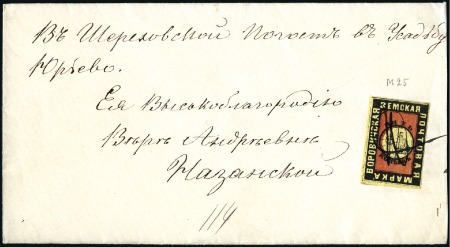 Въ Шереховской Погостъ въ Усадьбу
Юрьево.
M25
Ея Высокоблагородію
Вѣрѣ Андреевнѣ
Казанской
114
БОРОВИЧСКАЯ ЗЕМСКАЯ ПОЧТОВАЯ МАРКА